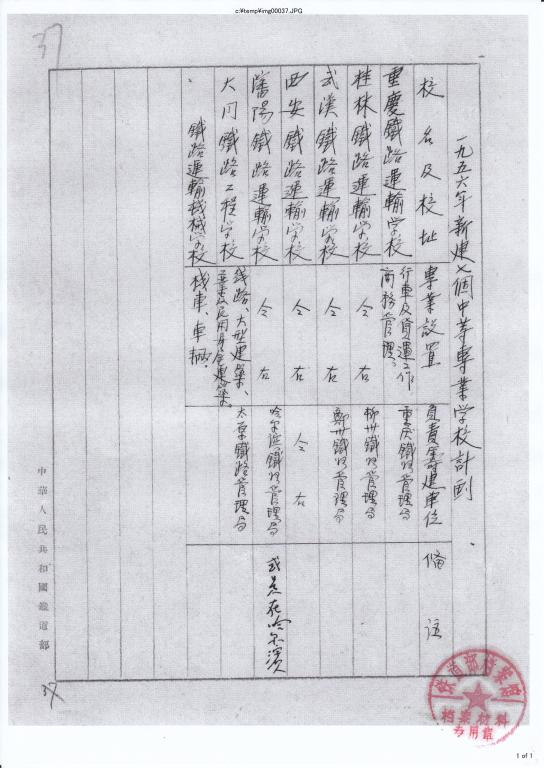 c:¥temp¥img00037.JPG
37
一九五六年新建七個中等專業学校計劃
校名及校址 專業設置 負責籌建单位 俻註
重慶鐵路運輸学校 行車及貨運工作、商務管理、 重庆鐵路管理局
桂林鐵路運輸学校 仝右 柳州鐵路管理局
武漢鐵路運輸学校 仝右 鄭州鐵路管理局
西安鐵路運輸学校 仝右 仝右
瀋陽鐵路運輸学校 仝右 哈尔滨鐵路管理局 或是在哈尔濱
大同鐵路工程学校 綫路、大型建築、 太原鐵路管理局
鐵路運輸機械学校 机車、車輛
中華人民共和國鐵道部
37
铁道部档案馆
档案材料
专用章
1 of 1